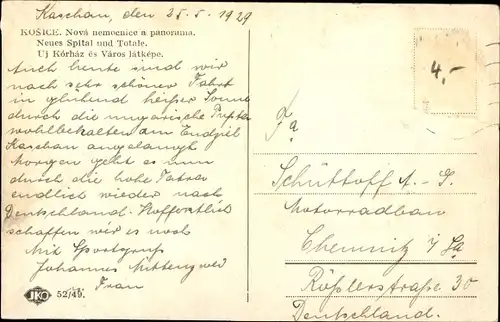 Kaschau, den 25.5.1929
KOŠICE. Nová nemocnice a panorama.
Neues Spital und Totale.
Uj Kórház és Város látképe.
Auch heute sind wir
nach sehr schöner Fahrt
in glühend heißer Sonne
durch die ungarische Pußta
wohlbehalten am Endziel
Kaschau angelangt
Morgen geht es nun
durch die hohe Tatra
endlich wieder nach
Deutschland. Hoffentlich
schaffen wir es noch
Mit Sportgruß
Johannes Mittenzwei
Frau
JKO 52/49.
4,-
Fa
Schüttoff A.-G.
Motorradbau
Chemnitz i/Sa
Rößlerstraße 30
Deutschland.